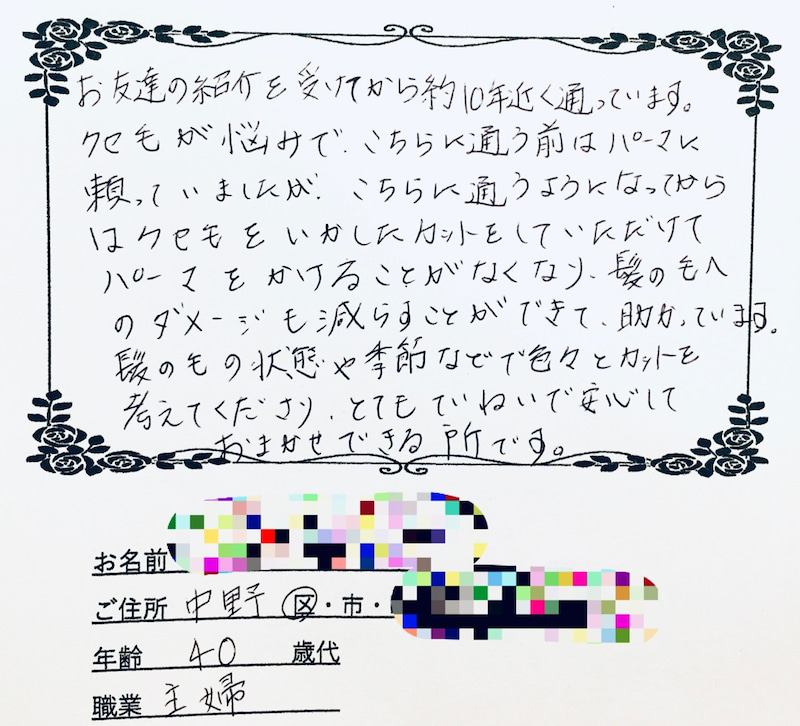 お友達の紹介を受けてから約10年近く通っています。
クセ毛が悩みで、こちらに通う前はパーマに
頼っていましたが、こちらに通うようになってから
はクセ毛をいかしたカットをしていただけて
パーマをかけることがなくなり、髪の毛へ
のダメージも減らすことができて、助かっています。
髪のもの状態や季節などで色々とカットを
考えてくださり、とてもていねいで安心して
おまかせできる所です。
お名前
ご住所 中野 区・市・
年齢 40 歳代
職業 主婦